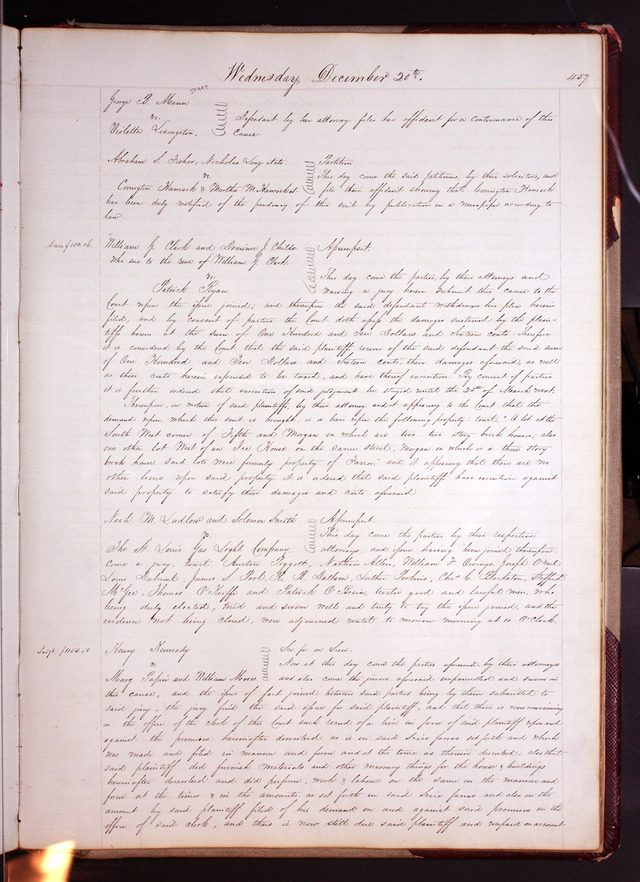 Wednesday December 20th. 457
George B. Mann
vs.
Violetta Livingston.
Defendant by her attorney files her affidavit for a continuance of this
cause.
Abraham S. Fisher, Nicholas Long et als. Partition
vs
This day come the said petitioners, by their solicitors, and
Covington Hancock & Martha M Hancock file their affidavit showing that Covington Hancock
has been duly notified of the pendency of this suit by publication in a newspaper according to
law.
William G. Clark and J. Childs Assumpsit.
Who sue to the use of William G. Clark
vs
This day come the parties by their attorneys and
Patrick Ryan waiving a jury herein submit this cause to the
Court upon the issue joined; and thereupon the said defendant withdraws his plea herein
filed, and by consent of parties the Court doth assess the damages sustained by the plain-
tiffs herein at the sum of One Hundred and Dollars and Sixteen cents. Therefore
it is considered by the Court that the said plaintiffs recover of the said defendant the said sum
of One Hundred and Dollars and Sixteen cents, their damages aforesaid, as well
as their costs herein expended to be taxed, and have thereof execution. By consent of parties
it is further ordered that execution of said judgment be stayed until the of March next.
Thereupon, on motion of said plaintiffs, by their attorney, and it appearing to the Court that the
demand upon which this suit is brought, is a lien upon the following property to wit: "A lot at the
South West corner of Fifth and Morgan on which are two two story brick houses; also
one other lot West of an Ice House on the same street, Morgan on which is a three story
brick house said lots were formerly property of " and it appearing that there are no
other liens upon said property it is ordered that said plaintiffs have execution against
said property to satisfy their damages and costs aforesaid
Noah M. Ludlow and Solomon Smith Assumpsit.
vs.
This day come the parties by their respective
The St. Louis Gas Light Company attorneys, and issue having been joined thereupon
come a jury, towit, Austin Piggott, Nathan Allen, William F. Joseph O'Neil
Louis Dubreuil, James S. R. B. Dallam, Luther Perkins, Chas. C.
McGee, Thomas O'Keiffe and Patrick O'Brien, twelve good and lawful men, who
being duly elected, tried and sworn well and truly to try the issue joined, and the
evidence not being closed, were adjourned until to morrow morning at 10 O'Clock.
Henry Kennedy Sci. fa. on Lien.
vs
Now at this day come the parties aforesaid by their attorneys
Mary Papin and William and also come the jurors aforesaid empannelled and sworn in
this cause, and the issue of fact joined between said parties being by them submitted to
said jury, the jury find the said issue for said plaintiff, and that there is now remaining
in the office of the clerk of this Court such record of a lien in favor of said plaintiff upon and
against the premises hereinafter described as is in said Scire facias set forth and which
was made and filed in manner and form and at the time as therein recited; also that
said plaintiff did furnish materials and other necessary things for the house & buildings
hereinafter described and did perform work & labour on the same in the manner and
form at the times & in the amounts as set forth in said Scire facias and also on the
amount by said plaintiff filed of his demand on and against said premises in the
office of said clerk, and there is now still due said plaintiff and unpaid on account